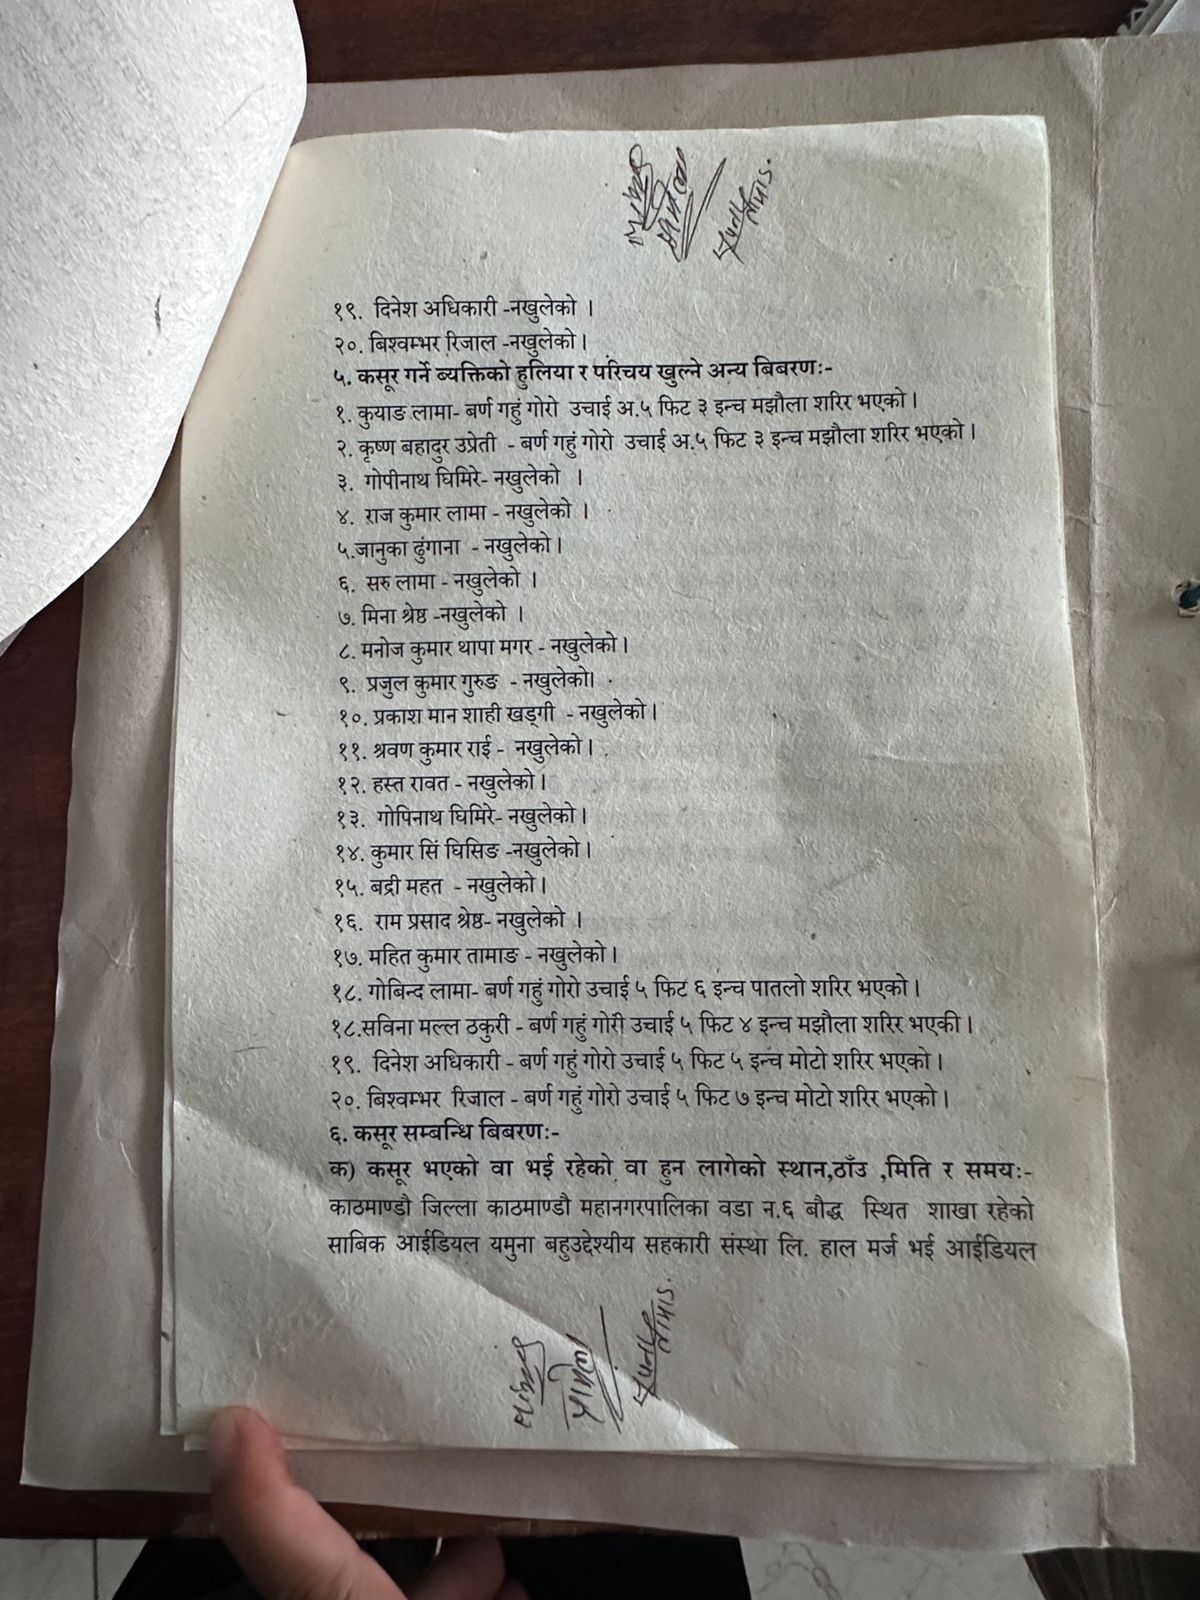 १९. दिनेश अधिकारी -नखुलेको ।
२०. बिश्वम्भर रिजाल -नखुलेको।
५. कसूर गर्ने ब्यक्तिको हुलिया र परिचय खुल्ने अन्य बिबरणः-
१. कुयाङ लामा- बर्ण गहुं गोरो उचाई अ.५ फिट ३ इन्च मझौला शरिर भएको।
२. कृष्ण बहादुर उप्रेती - बर्ण गहुं गोरो उचाई अ.५ फिट ३ इन्च मझौला शरिर भएको।
३. गोपीनाथ घिमिरे- नखुलेको ।
४. राज कुमार लामा - नखुलेको ।
५.जानुका ढुंगाना - नखुलेको।
६. सरु लामा - नखुलेको ।
७. मिना श्रेष्ठ -नखुलेको ।
८. मनोज कुमार थापा मगर - नखुलेको।
९. प्रजुल कुमार गुरुङ - नखुलेको।
१०. प्रकाश मान शाही खड्गी - नखुलेको।
११. श्रवण कुमार राई - नखुलेको।
१२. हस्त रावत - नखुलेको।
१३. गोपिनाथ घिमिरे- नखुलेको।
१४. कुमार सिं घिसिङ -नखुलेको।
१५. बद्री महत - नखुलेको।
१६. राम प्रसाद श्रेष्ठ- नखुलेको ।
१७. महित कुमार तामाङ - नखुलेको।
१८. गोबिन्द लामा- बर्ण गहुं गोरो उचाई ५ फिट ६ इन्च पातलो शरिर भएको।
१८.सविना मल्ल ठकुरी - बर्ण गहुं गोरी उचाई ५ फिट ४ इन्च मझौला शरिर भएकी।
१९. दिनेश अधिकारी - बर्ण गहुं गोरो उचाई ५ फिट ५ इन्च मोटो शरिर भएको।
२०. बिश्वम्भर रिजाल - बर्ण गहुं गोरो उचाई ५ फिट ७ इन्च मोटो शरिर भएको।
६. कसूर सम्बन्धि बिबरणः-
क) कसूर भएको वा भई रहेको वा हुन लागेको स्थान,ठाँउ ,मिति र समयः-
काठमाण्डौ जिल्ला काठमाण्डौ महानगरपालिका वडा न.६ बौद्ध स्थित शाखा रहेको
साबिक आईडियल यमुना बहुउद्देश्यीय सहकारी संस्था लि. हाल मर्ज भई आईडियल